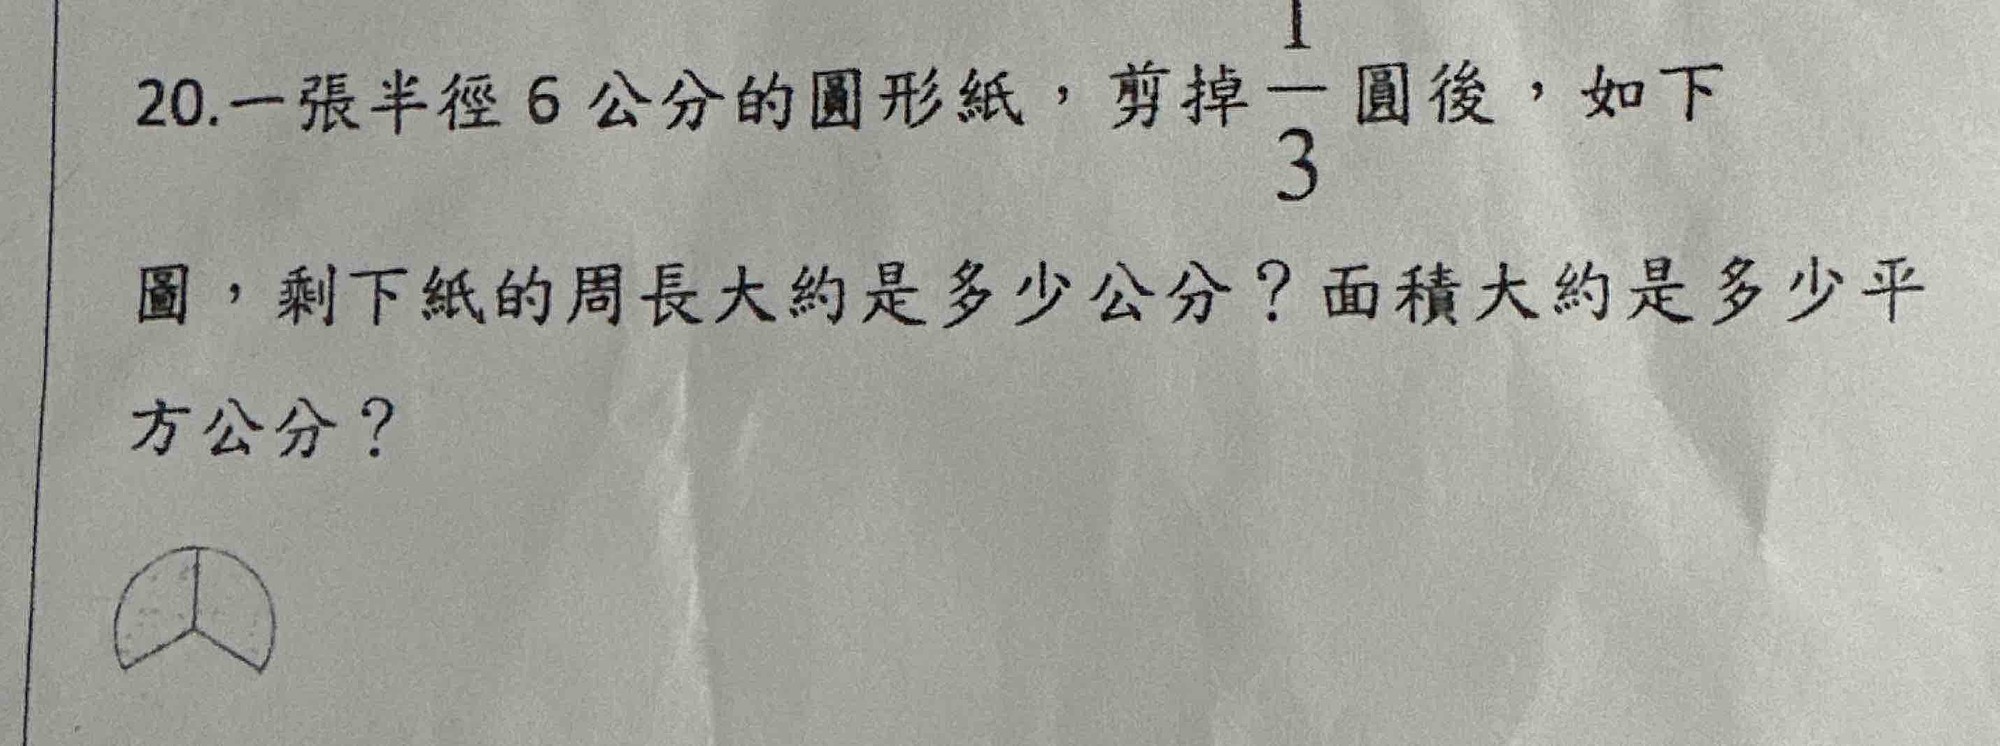 20.一張半徑 6 公分的圓形紙，剪掉 1/3 圓後，如下
圖，剩下紙的周長大約是多少公分？面積大約是多少平
方公分？